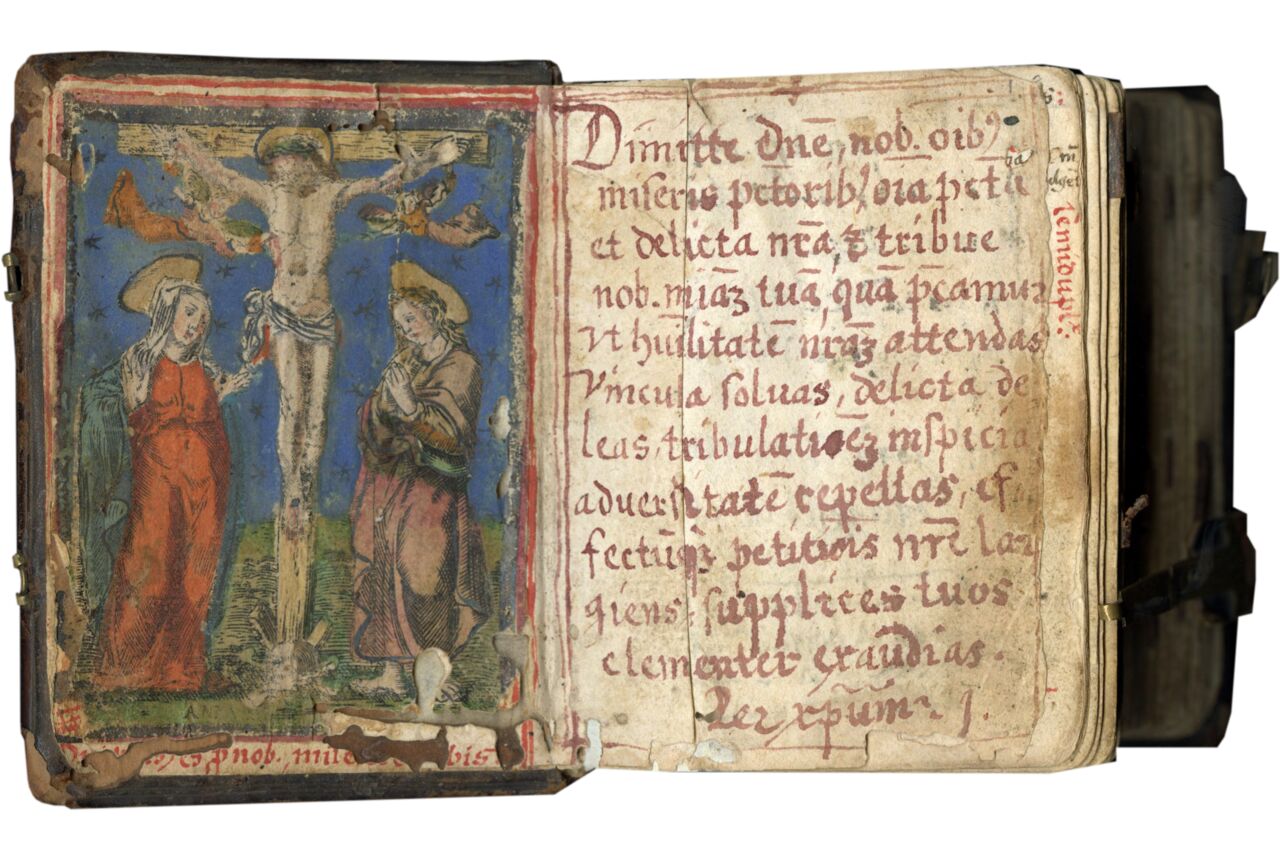 Dimitte dnē, nob. oib⁹
miseris pctorib/ oīa pctā
et delicta nr̄a, ꝫ tribue
nob. mīaꝫ tuā, quā p̄camur
Vt hūilitatē nr̄aꝫ attendas
Vincula soluas, delicta de
leas, tribulatiōēꝫ inspicia
aduersitatē repellas, ef
fectūqꝫ petitiōis nr̄ē lar
giens, supplices tuos
clementer exaūdias.
Per xp̄ūm
nob.